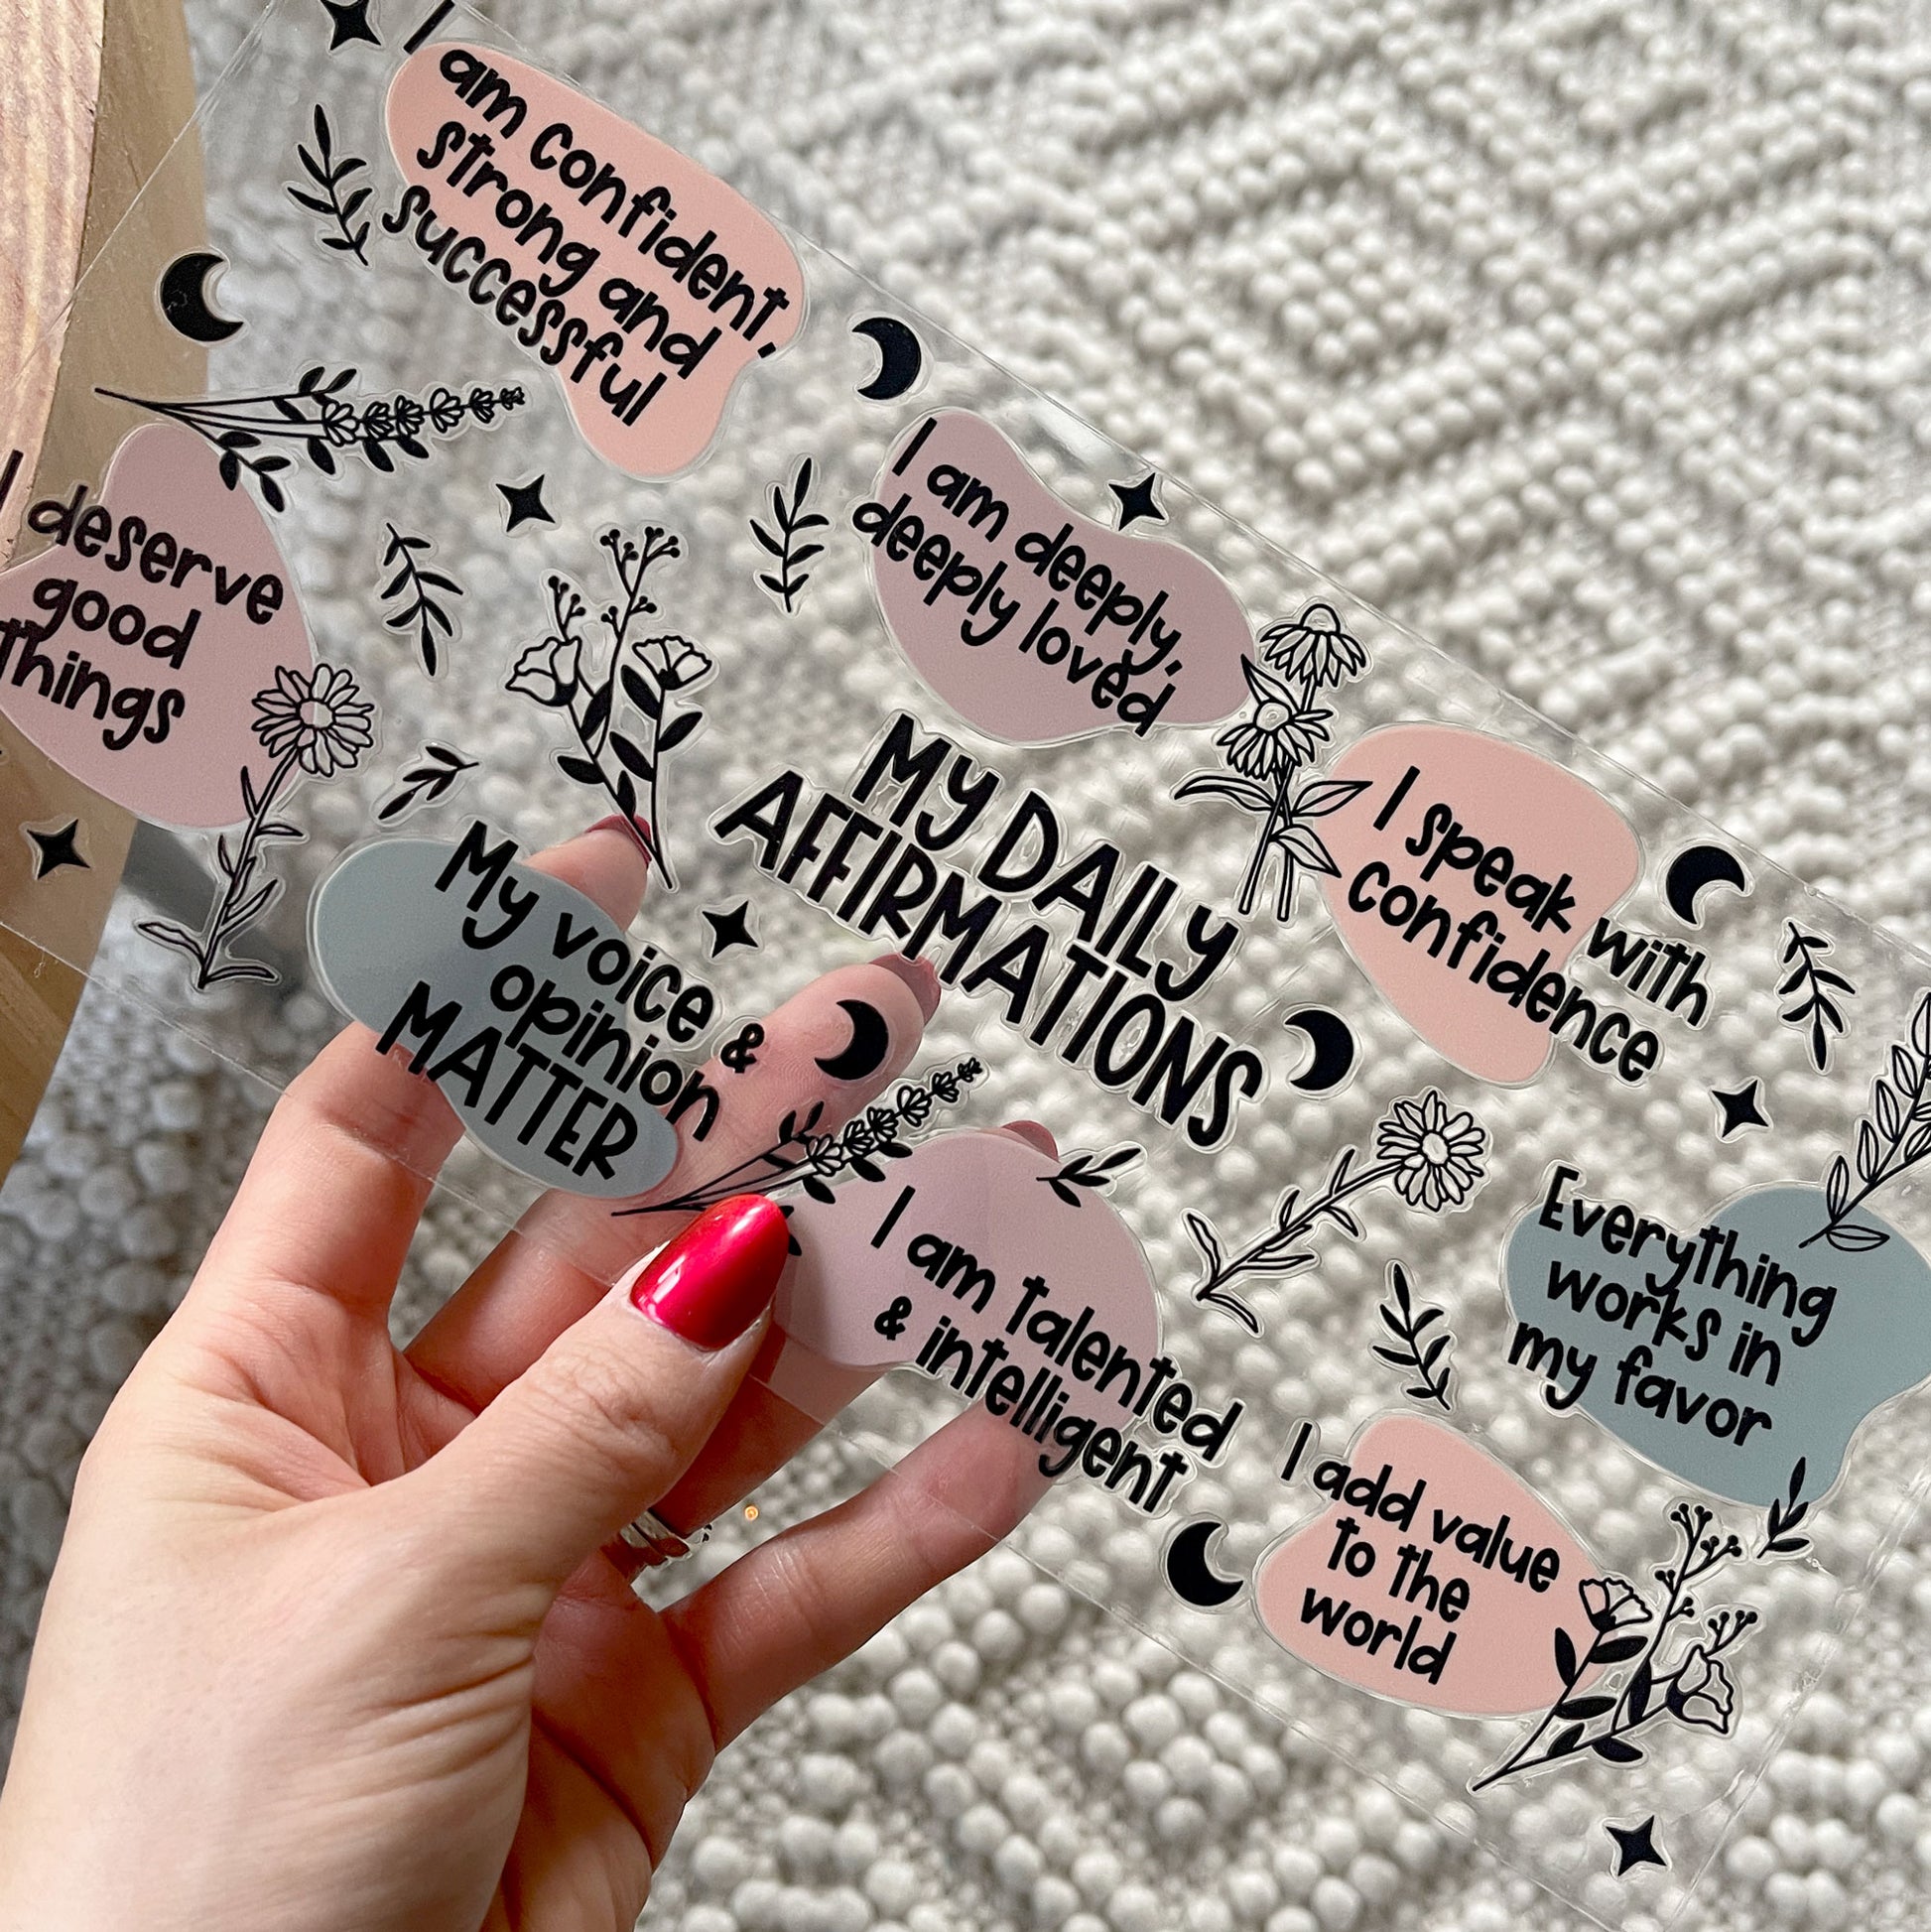 I
am confident,
strong and
successful
I deserve
good
things
I am deeply,
deeply loved
MY DAILY
AFFIRMATIONS
I speak with
confidence
My voice &
opinion
MATTER
I am talented
& intelligent
Everything
works in
my favor
I add value
to the
world